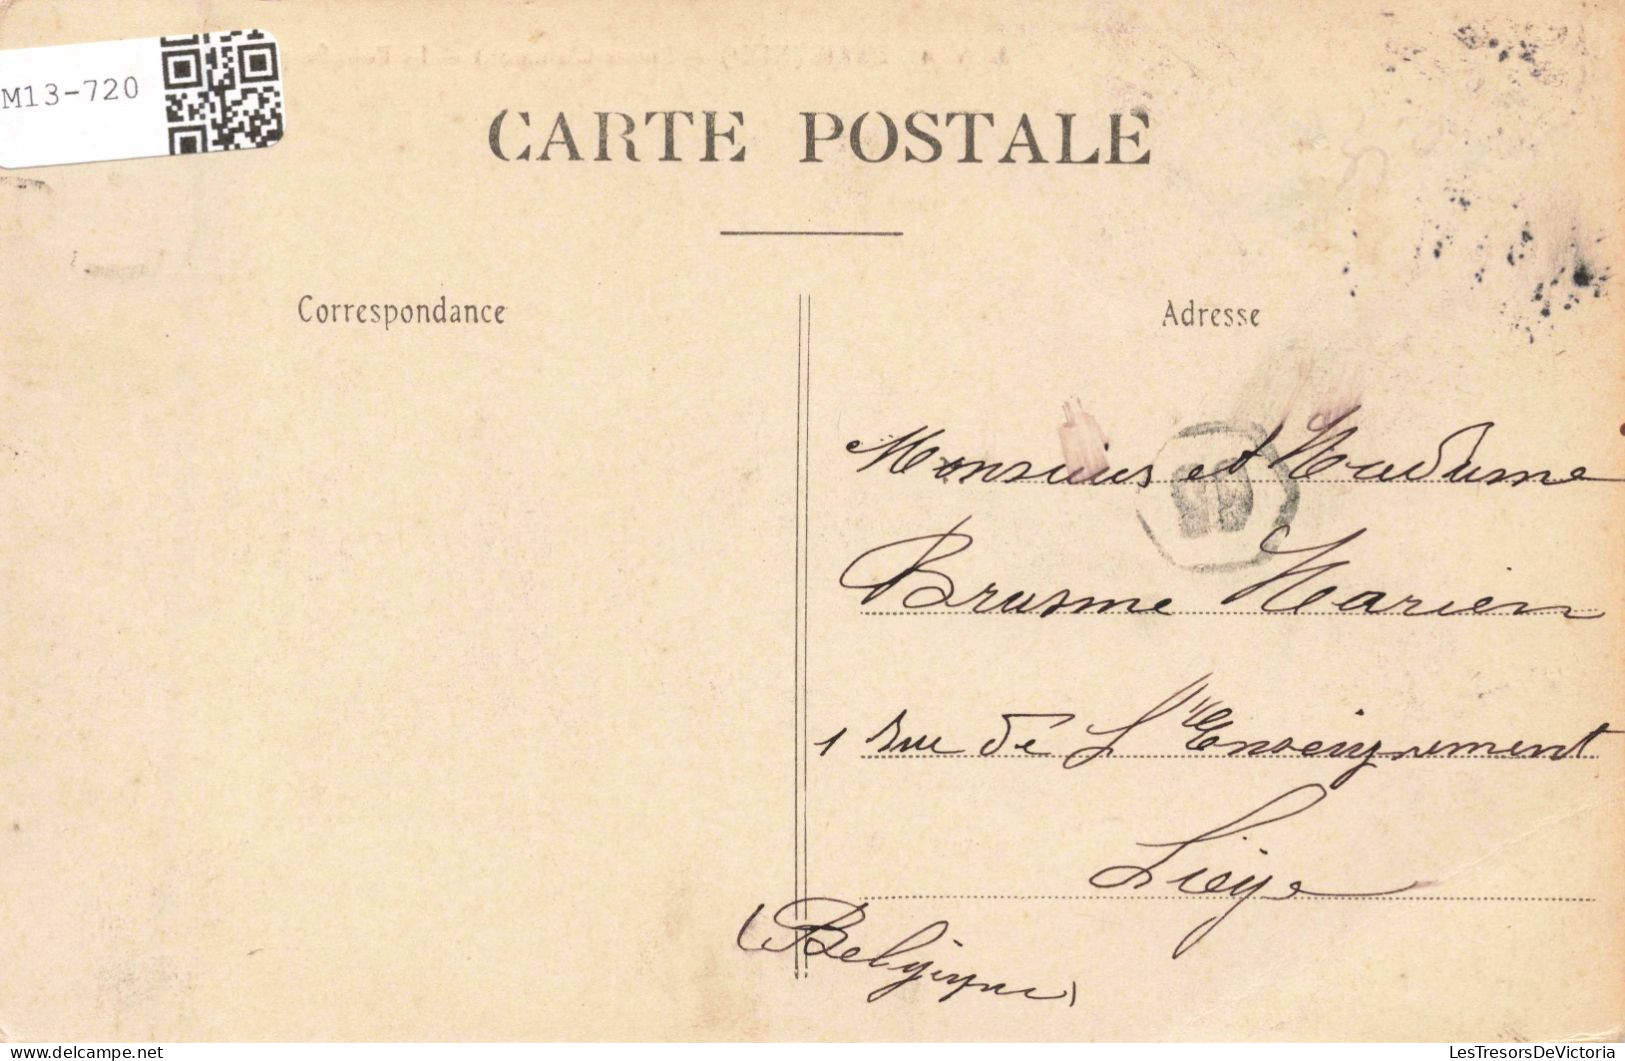 M13-720
CARTE POSTALE
Correspondance
Adresse
Monsieur et Madame
Brusme Marien
1 Rue de L'Enseignement
Liège
(Belgique)
LesTresorsDeVictoria